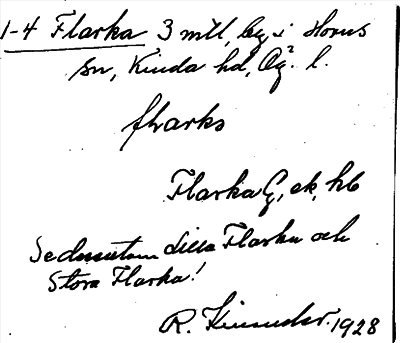 1-4 Flarka 3 mtl, by i Horns
sn, Kinda hd, Ög. l.
flarks
Flarka G, ek, hb
Se dessutom Lilla Flarka och
Stora Flarka!
R. 1928